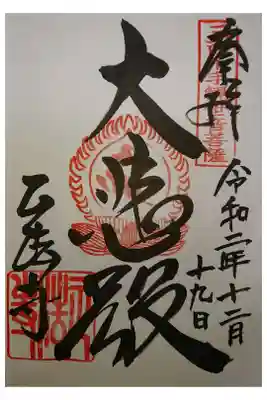 奉拝
令和二年十二月
十九日
大悲殿
正法寺